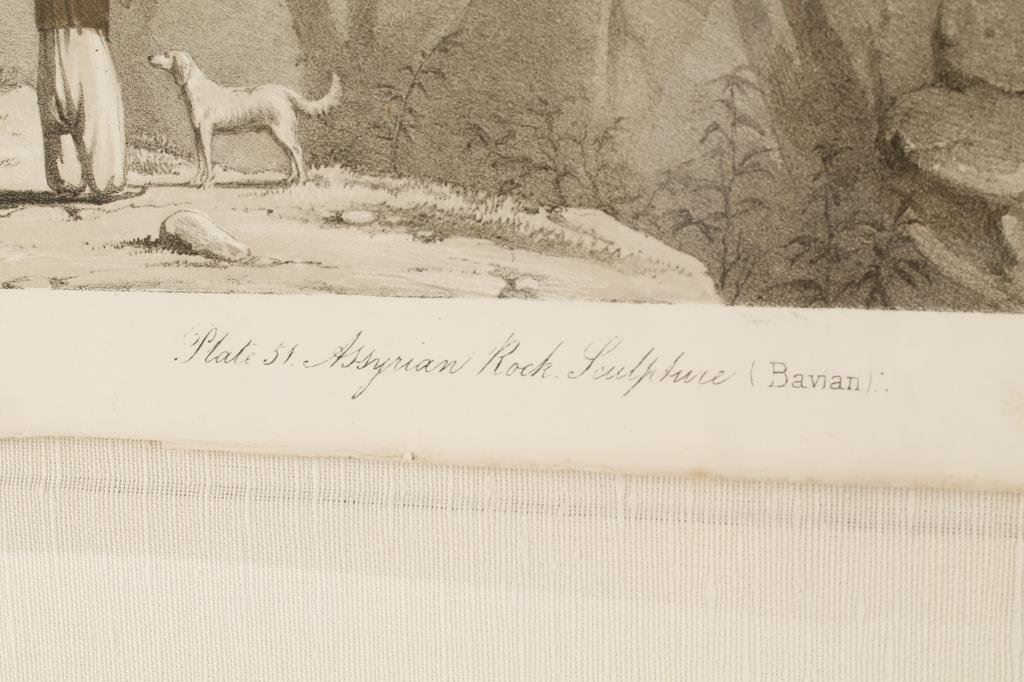 Plate 51. Assyrian Rock. Sculpture (Bavian).